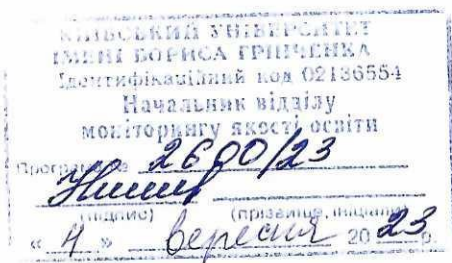 КИЇВСЬКИЙ УНІВЕРСИТЕТ
ІМЕНІ БОРИСА ГРІНЧЕНКА
Ідентифікаційний код 02136554
Начальник відділу
моніторингу якості освіти
Програма № 2600/23
(підпис) (прізвище, ініціали)
« 4 » вересня 20 23 р.